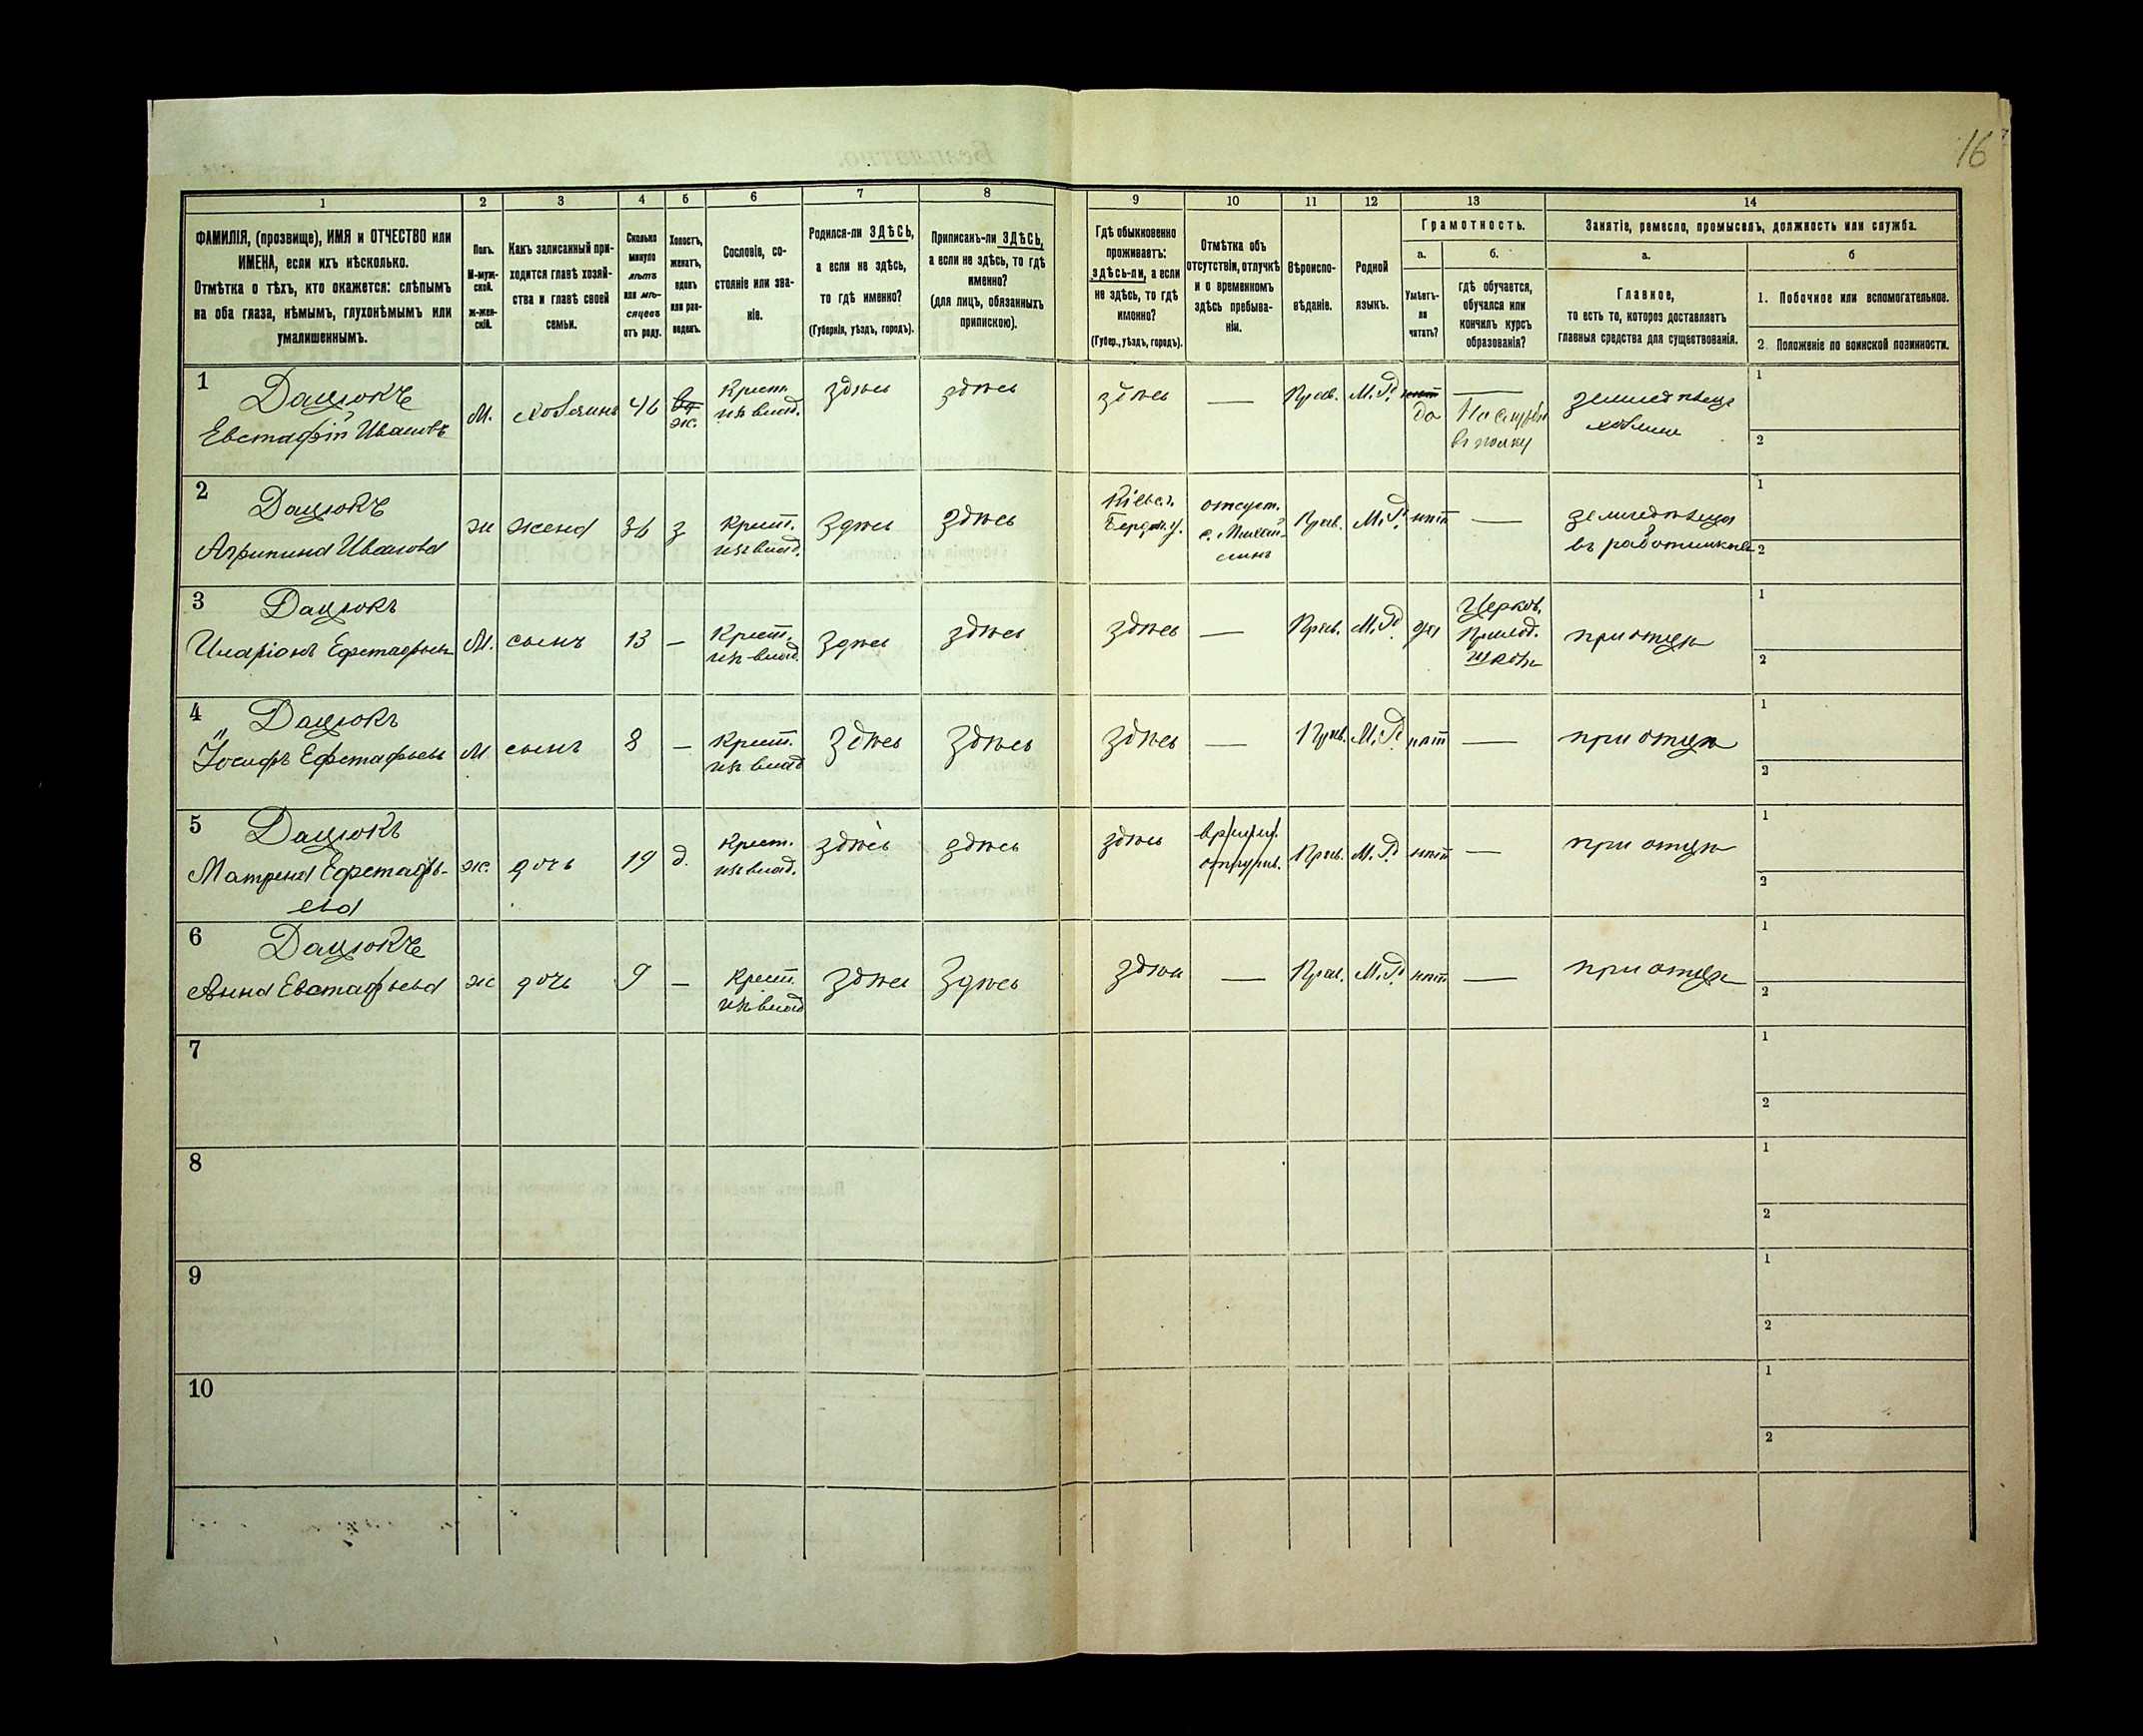 16
1
2
3
4
5
6
7
8
9
10
11
12
13
14
ФАМИЛІЯ, (прозвище), ИМЯ и ОТЧЕСТВО или
ИМЕНА, если ихъ нѣсколько.
Отмѣтка о тѣхъ, кто окажется: слѣпымъ
на оба глаза, нѣмымъ, глухонѣмымъ или
умалишеннымъ.
Полъ.
М-муж-
ской.
ж-жен-
скій.
Какъ записанный при-
ходится главѣ хозяй-
ства и главѣ своей
семьи.
Сколько
минуло
лѣтъ
или мѣ-
сяцевъ
отъ роду.
Холостъ,
женатъ,
вдовъ
или раз-
веденъ.
Сословіе, со-
стояніе или зва-
ніе.
Родился-ли ЗДѢСЬ,
а если не здѣсь,
то гдѣ именно?
(Губернія, уѣздъ, городъ).
Приписанъ-ли ЗДѢСЬ,
а если не здѣсь, то гдѣ
именно?
(для лицъ, обязанныхъ
припискою).
Гдѣ обыкновенно
проживаетъ:
здѣсь-ли, а если
не здѣсь, то гдѣ
именно?
(Губер., уѣздъ, городъ).
Отмѣтка объ
отсутствіи, отлучкѣ
и о временномъ
здѣсь пребыва-
ніи.
Вѣроиспо-
вѣданіе.
Родной
языкъ.
Грамотность.
а.
Умѣетъ-
ли
читать?
б.
гдѣ обучается,
обучался или
кончилъ курсъ
образованія?
Занятіе, ремесло, промыселъ, должность или служба.
а.
Главное,
то есть то, которое доставляетъ
главныя средства для существованія.
б
1. Побочное или вспомогательное.
2. Положеніе по воинской повинности.
1
Дацюкъ
Евстафій Ивановъ
М.
хозяинъ
46
ж.
Крест.
изъ влад.
здѣсь
здѣсь
здѣсь
—
Прав.
М.Р.
нѣт
да
—
На службѣ
въ полку
земледѣлецъ
хозяинъ
1
2
2
Дацюкъ
Агрипина Иванова
ж
жена
36
з
Крест.
изъ влад.
здѣсь
здѣсь
Кіевск.
Бердич. у.
отсут.
с. Михай-
линъ
Прав.
М.Р.
нѣтъ
—
въ работникахъ
1
2
3
Дацюкъ
Иларіонъ Ефстафьевъ
М.
сынъ
13
—
Крест.
изъ влад.
здѣсь
здѣсь
здѣсь
—
Прав.
М.Р.
да
Церков.
Приход.
школѣ
при отцѣ
1
2
4
Дацюкъ
Іосифъ Ефстафьевъ
М
сынъ
8
—
Крест.
изъ влад
Здѣсь
Здѣсь
здѣсь
—
Прав.
М.Р.
нѣтъ
—
при отцѣ
1
2
5
Дацюкъ
Матрена Ефстафь-
ева
ж.
дочь
19
д.
Крест.
изъ влад.
здѣсь
здѣсь
здѣсь
Прав.
М.Р.
нѣтъ
—
при отцѣ
1
2
6
Дацюкъ
Анна Евстафьева
ж
дочь
9
—
Крест.
изъ влад
Здѣсь
Здѣсь
Здѣсь
—
Прав.
М.Р.
нѣтъ
—
при отцѣ
1
2
7
1
2
8
1
2
9
1
2
10
1
2